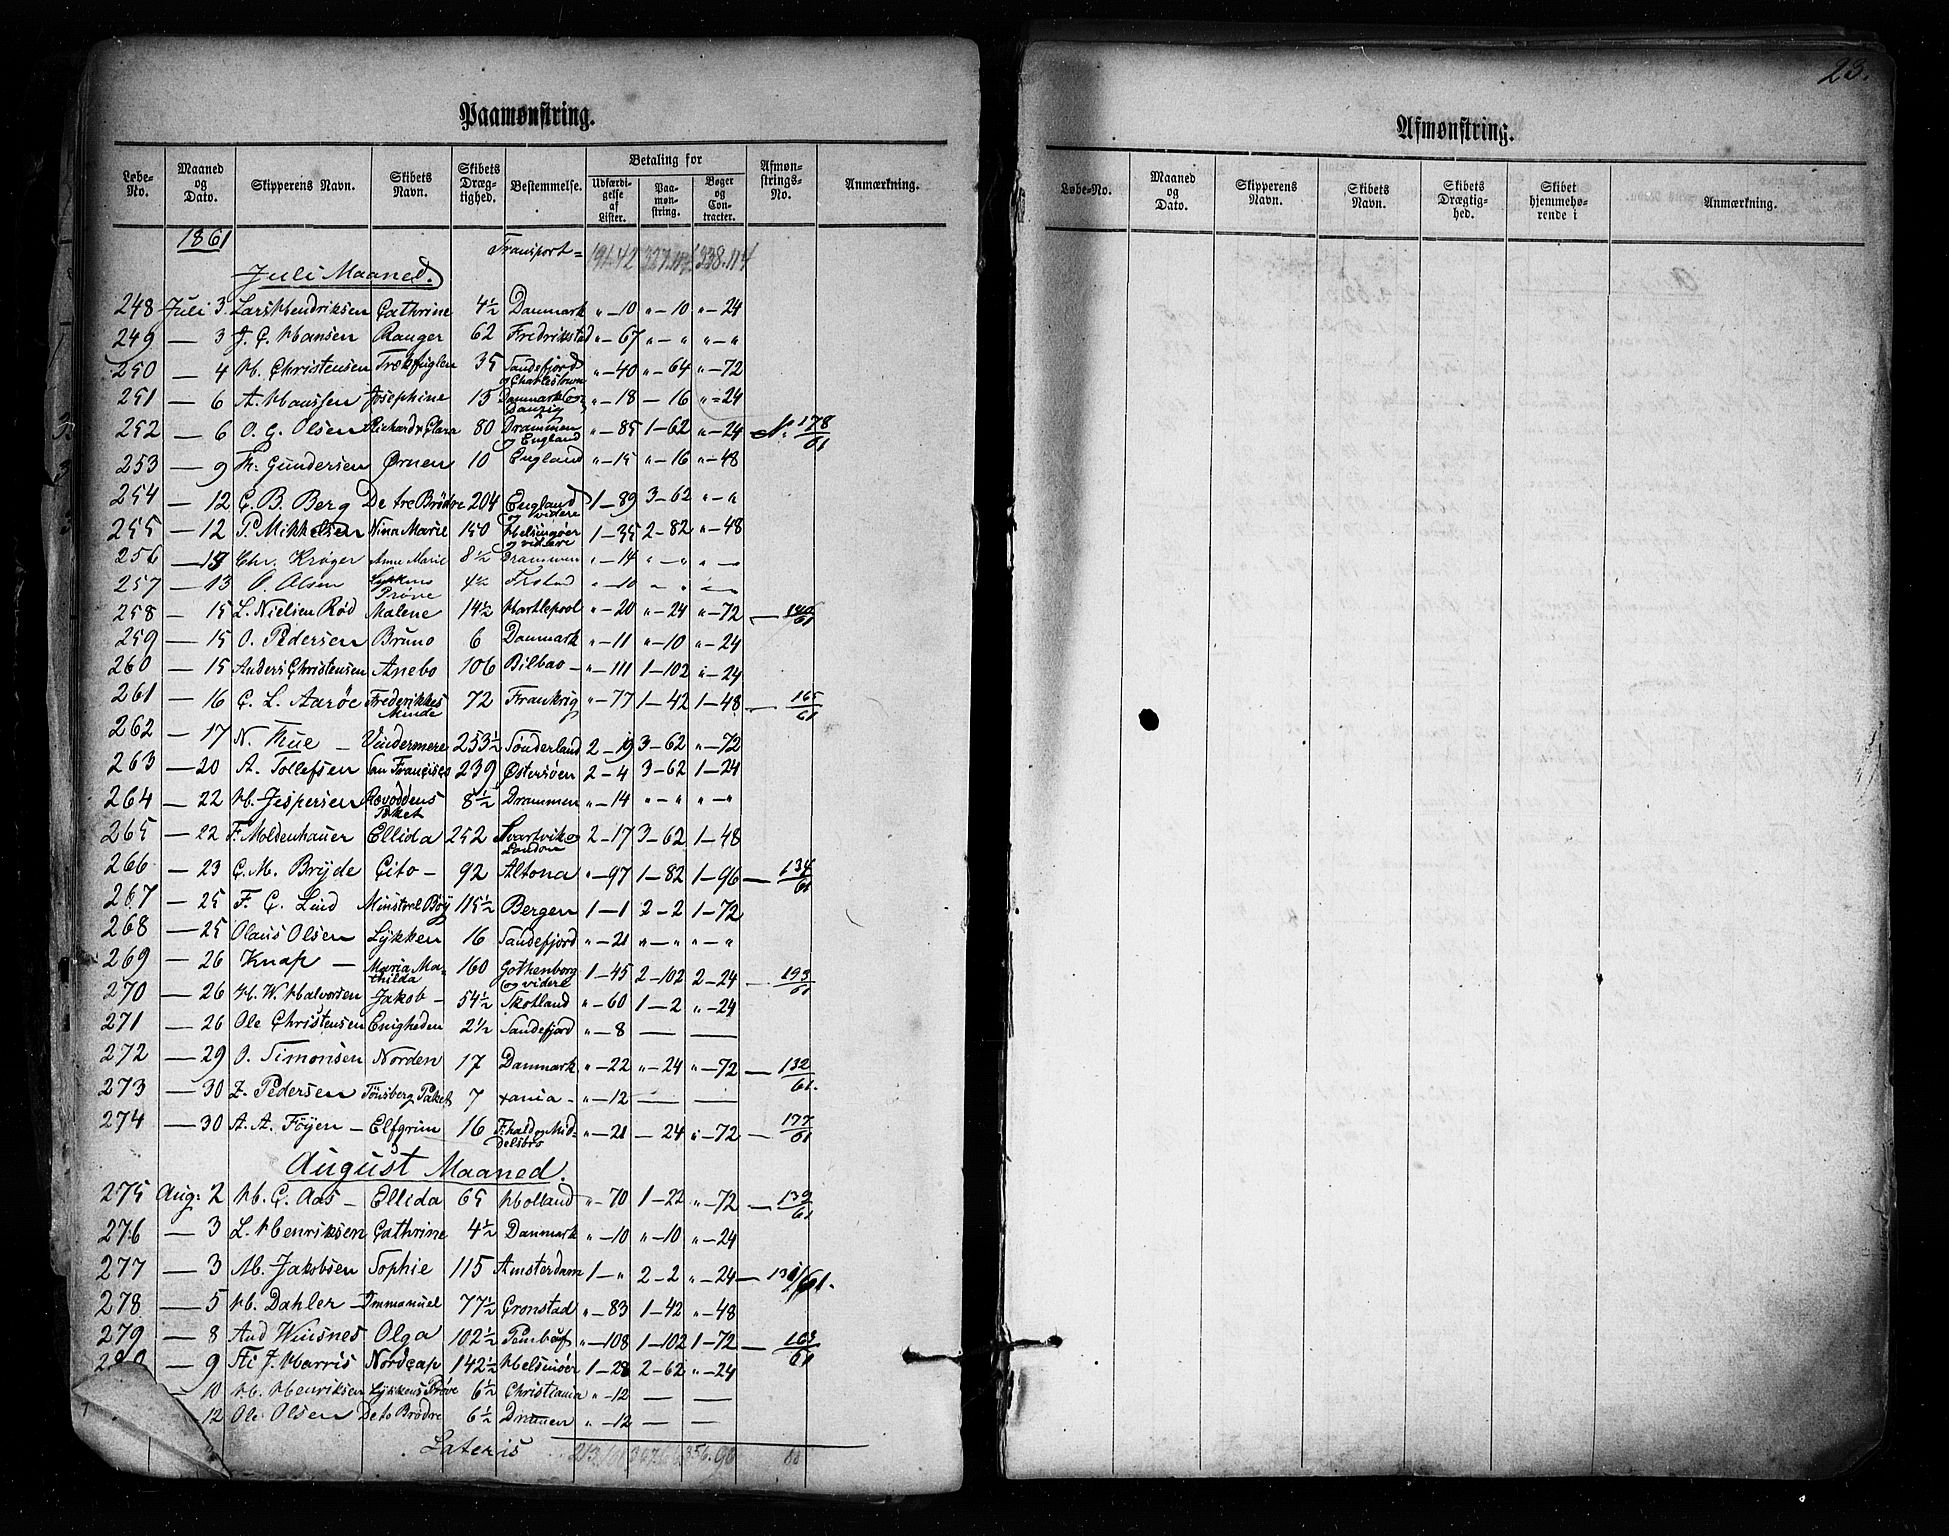 23.
Paamønstring.
Løbe-No. Maaned og Dato. Skipperens Navn. Skibets Navn. Skibets Drægtighed. Bestemmelse. Betaling for Udfærdigelse af Lister. Paamønstring. Bøger og Contracter. Afmønstrings-No. Anmærkning.
1861 Transport =
Juli Maaned.
248 Juli 3 Lars Hendriksen Cathrine 4½ Danmark " - 10 " - 10 " - 24
249 — 3 J. C. Hansen Ranger 62 Fredrikstad " - 67 " - " " - "
250 — 4 H. Christensen Trækfuglen 35 Sandefjord og Charlestown " - 40 " - 64 " - 72
251 — 6 A. Hanssen Josephine 15 Danmark og Danzig " - 18 — 16 " - 24
252 — 6 O. G. Olsen Richard & Clara 80 Drammen og England " - 85 1 - 62 " - 24 No 178/61
253 — 9 Th. Gundersen Ørnen 10 England " - 15 " - 16 " - 48
254 — 12 C. B. Berg De tre Brødre 204 England og videre 1 - 89 3 - 62 " - "
255 — 12 P. Mikkelsen Nina Marie 150 Helsingøer og videre 1 - 35 2 - 82 " - 48
256 — 13 Chr. Krøger Anne Marie 8½ Drammen " - 14 " - " " - "
257 — 13 O. Olsen Lykkens Prøve 4½ Frstad " - 10 " - " " —
258 — 15 L. Nielsen Rød Malene 14½ Hartlepool " - 20 " - 24 " - 72 — 140/61
259 — 15 O. Pedersen Bruno 6 Danmark " - 11 " - 10 " - 24
260 — 15 Anders Christensen Anebo 106 Bilbao - " - 111 1 - 102 " - 24
261 — 16 C. L. Aarøe Frederikkes Minde 72 Frankrig " - 77 1 - 42 1 - 48 — 165/61
262 — 17 N. Thue — Vindermere 253½ Sønderland 2 - 19 3 - 62 " - 72
263 — 20 A. Tollefsen San Francisco 239 Østersøen 2 - 4 3 - 62 1 - 24
264 — 22 H. Jespersen Rovoddens Paket 8½ Drammen " - 14 " - " " - "
265 — 22 F. Moldenhauer Ellida 252 Svartvik og London 2 - 17 3 - 62 1 - 48
266 — 23 C. M. Bryde Cito - 92 Altona " - 97 1 - 82 1 - 96 — 134/61
267 — 25 F. C. Lind Minstrel Boy 115½ Bergen 1 - 1 2 - 2 1 - 72
268 — 25 Olaus Olsen Lykken 16 Sandefjord " - 21 " - " " - "
269 — 26 Knap — Maria Mathilda 160 Gothenborg og videre 1 - 45 2 - 102 2 - 24 — 193/61
270 — 26 H. W. Halvorsen Jakob - 54½ Skotland " - 60 1 - 2 " - 24
271 — 26 Ole Christensen Enigheden 2½ Sandefjord " - 8 — —
272 — 29 O. Simonsen Norden 17 Danmark " - 22 " - 24 " - 72 — 132/61
273 — 30 Z. Pedersen Tönsberg Paket 7 xania - " - 12 — —
274 — 30 A. A. Föyen — Elfgrim 16 " - 21 — 24 " - 72 — 177/61
August Maaned.
275 Aug: 2 H. C. Aas - Ellida 65 Holland " - 70 1 - 22 " - 72 — 139/61
276 — 3 L. Henriksen Cathrine 4½ Danmark " - 10 " - 10 " - 24
277 — 3 Ab. Jakobsen Sophie 115 Amsterdam 1 - " 2 - 2 " - 24 —
278 — 5 H. Dahler - Immanuel 77½ Cronstad " - 83 1 - 42 " - 48
279 — 8 And Winsnes Olga 102½ " - 108 1 - 102 1 - 72 — 163/61
— 9 J. Harris Nordcap 142½ Helsenøer 1 - 28 2 - 62 " - 24
10 H. Henriksen Lykkens Prøve 6½ Christiania " - 12 — —
12 Ole Olsen De to Brødre 6½ Drammen " - 12 — —
Lateris
Afmønstring.
Løbe-No. Maaned og Dato. Skipperens Navn. Skibets Navn. Skibets Drægtighed. Skibet hjemmehørende i Anmærkning.